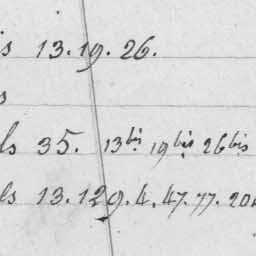 is 13. 19. 26.
s
ls 35. 13bis 19bis 26bis
ls 13. 129. 4. 47. 77. 20